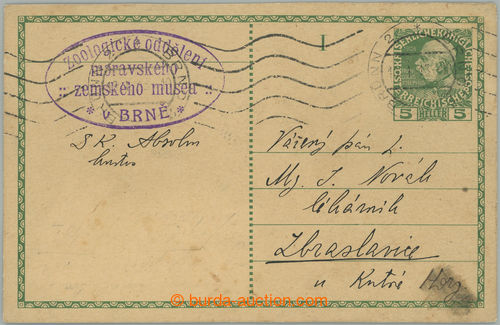 Zoologické oddělení
moravského
:: zemského musea ::
* v BRNĚ *
I
5 HELLER 5
Dr K. Absolon
kustos
Vážený pán t.
Mg. J. Novák
lékárník
Zbraslavice
u Kutné
Hory
© burda-auction.com